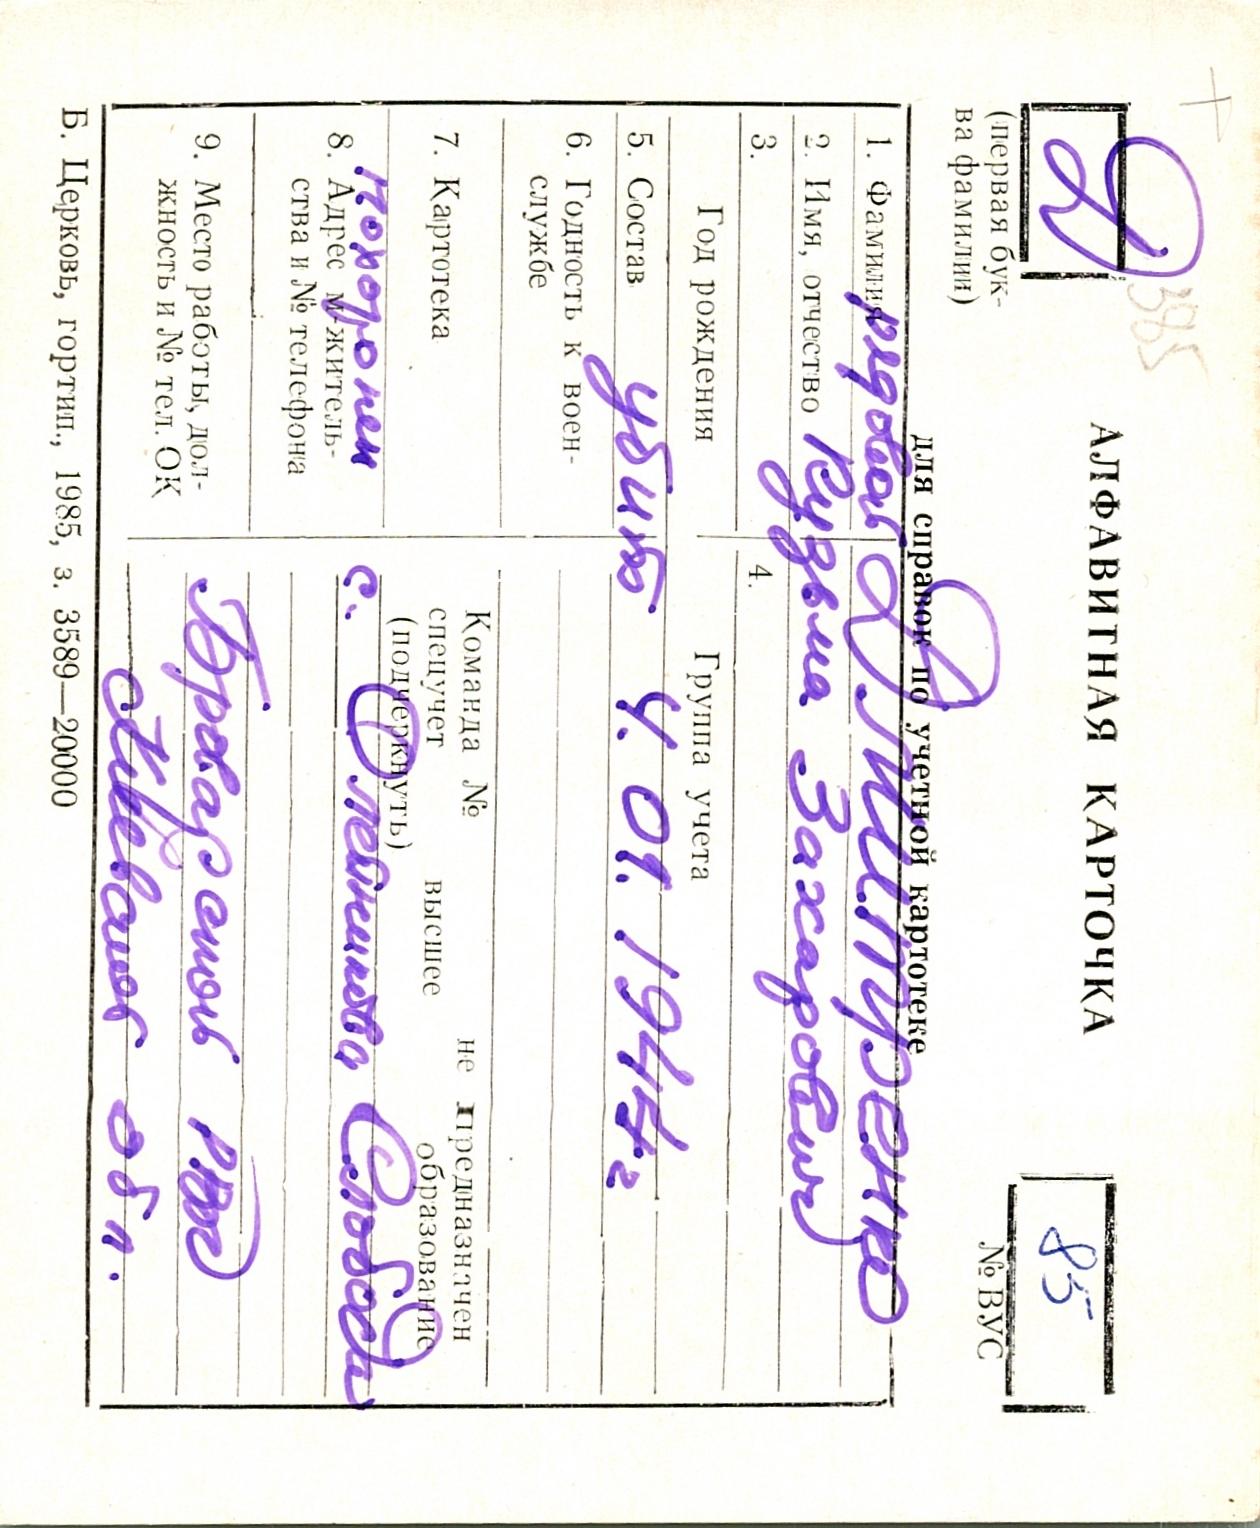 Д
(первая бук-
ва фамилии)
385
АЛФАВИТНАЯ КАРТОЧКА
для справок по учетной картотеке
85
№ ВУС
1. Фамилия рядовой Дмитренко
2. Имя, отчество Кузьма Захарович
3.
4.
Год рождения
Группа учета
5. Состав убит 4.01.1944 г
6. Годность к воен-
службе
7. Картотека
Команда № не предназначен
спецучет высшее образование
(подчеркнуть)
похоронен
8. Адрес м-житель-
ства и № телефона
с. Олейникова Слобода
9. Место работы, дол-
жность и № тел. ОК
Броварской р-н
Киевской обл.
Б. Церковь, гортип., 1985, з. 3589—20000